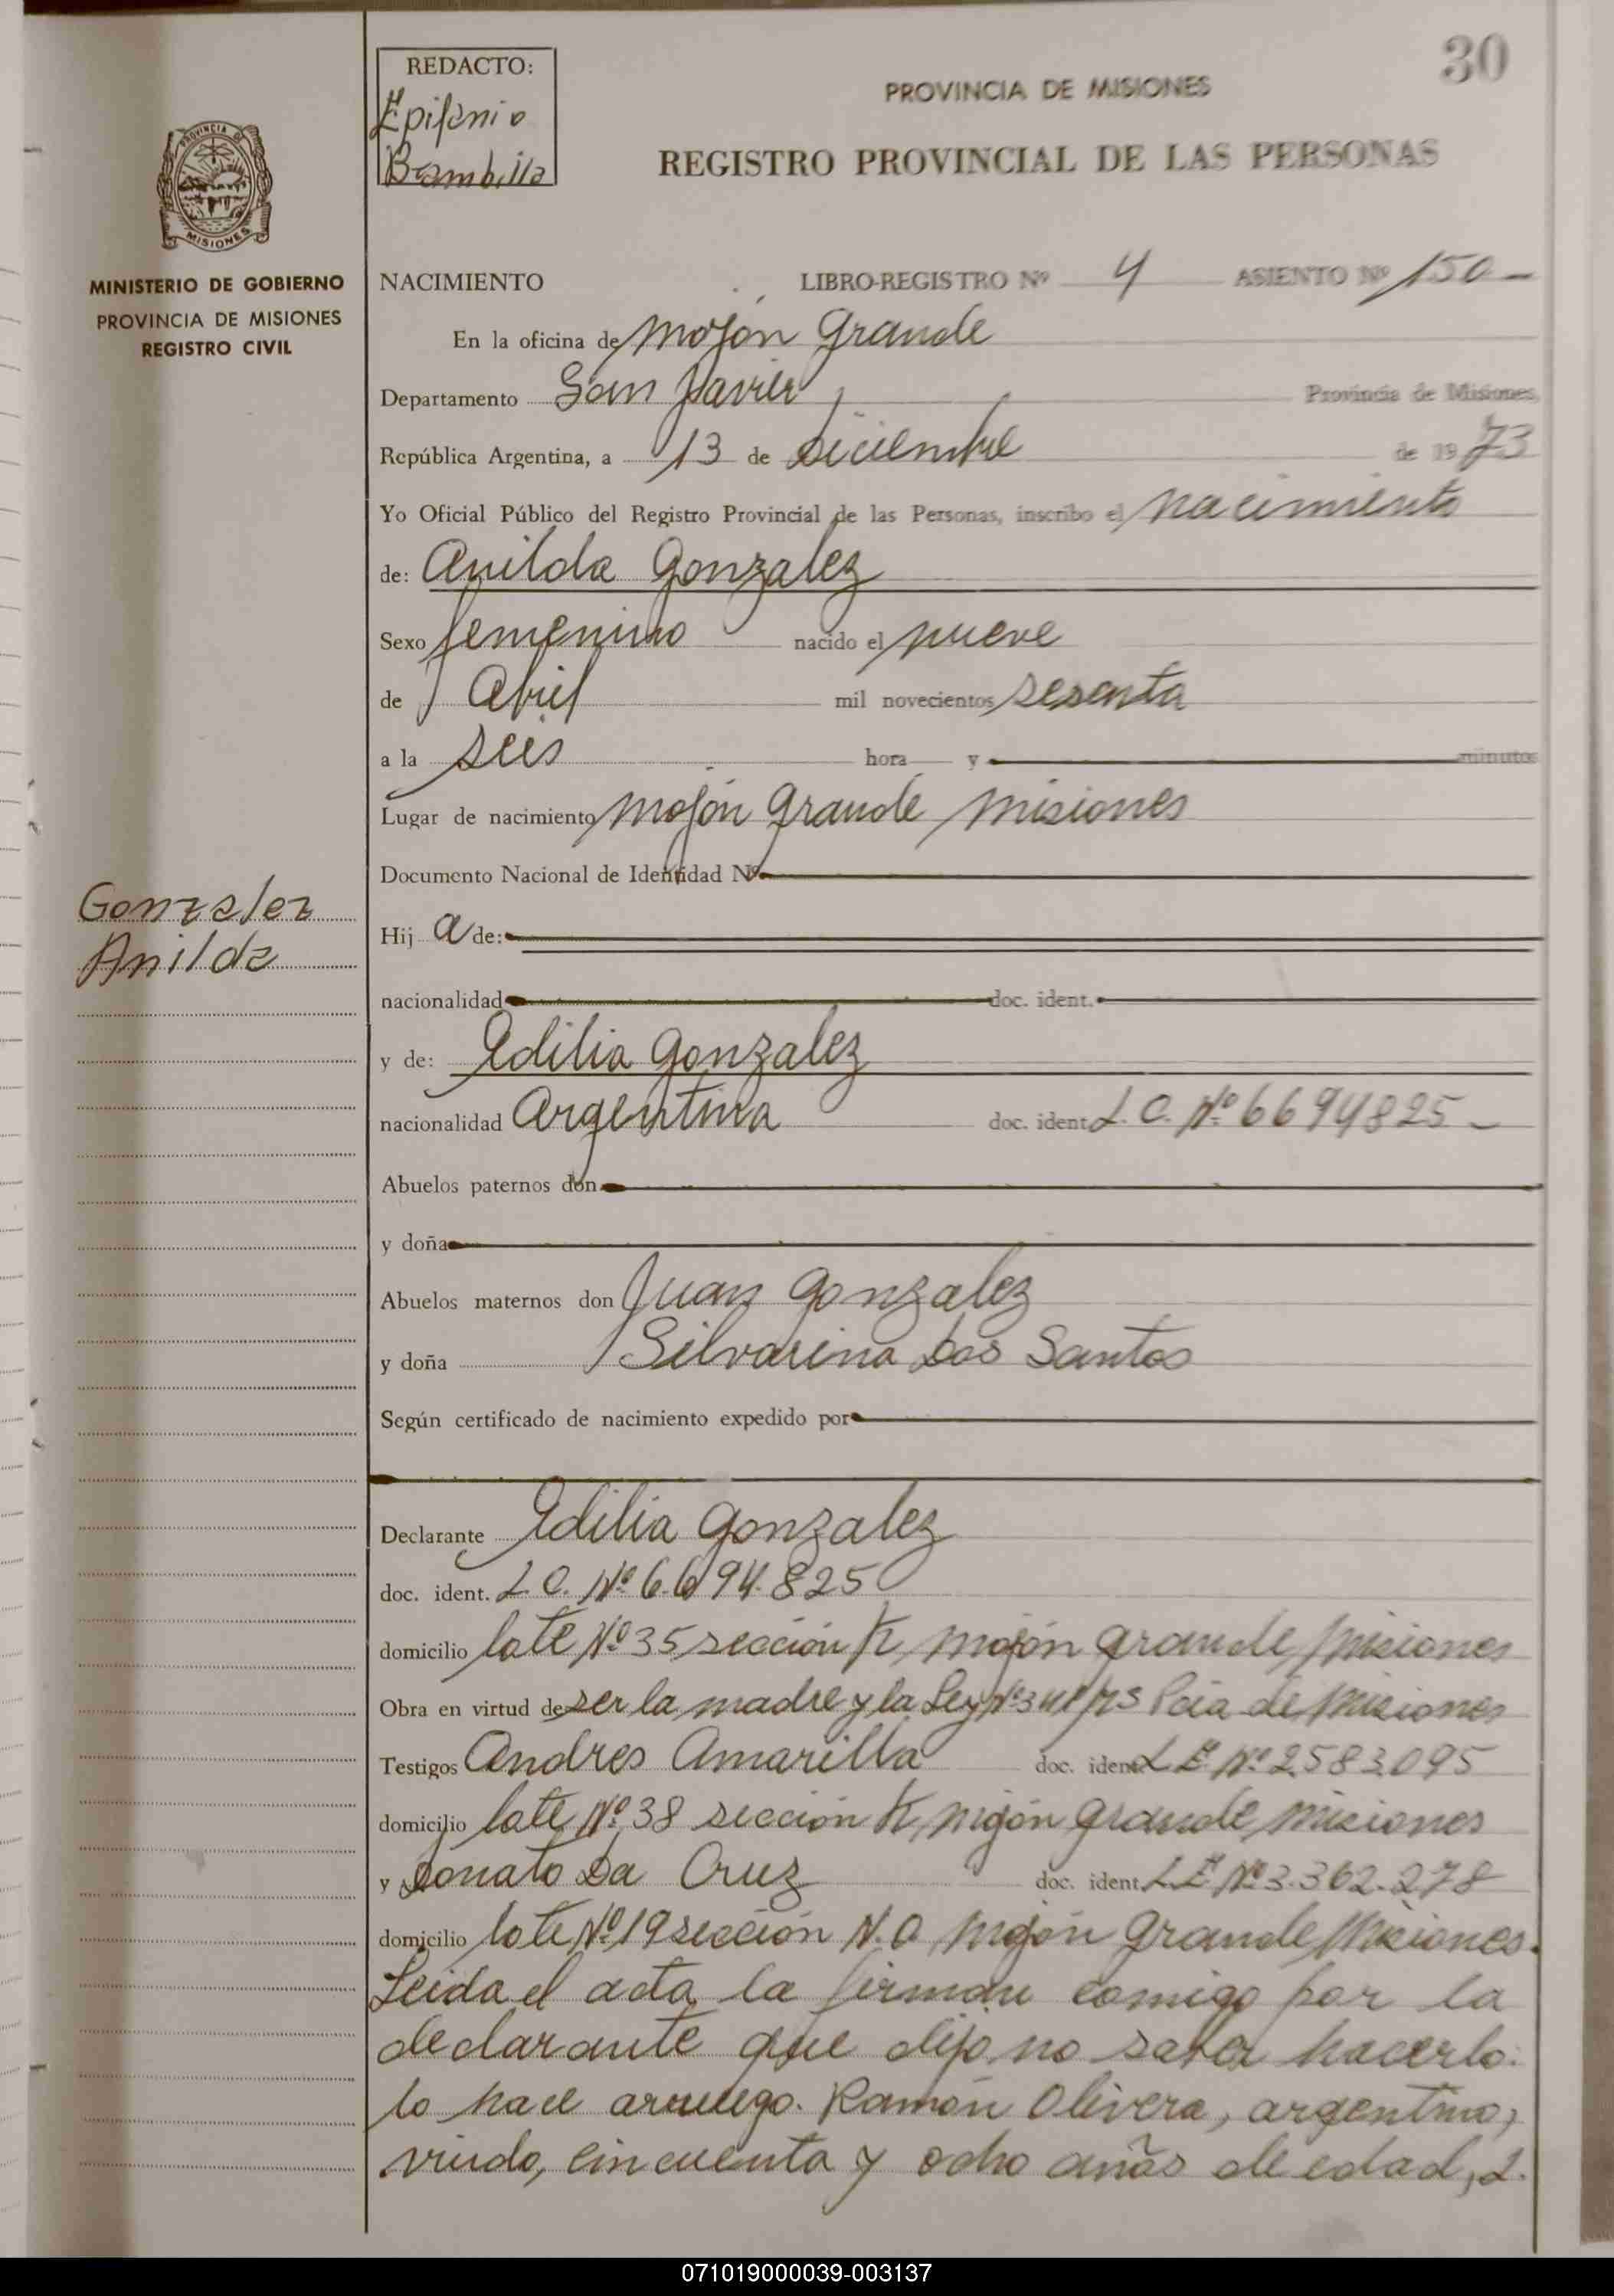 30
REDACTO:
Epifanio
Brambilla
PROVINCIA DE MISIONES
REGISTRO PROVINCIAL DE LAS PERSONAS
PROVINCIA DE
MISIONES
MINISTERIO DE GOBIERNO
PROVINCIA DE MISIONES
REGISTRO CIVIL
NACIMIENTO LIBRO-REGISTRO Nº 4 ASIENTO Nº 150-
En la oficina de Mojón Grande
Departamento San Javier, Provincia de Misiones,
República Argentina, a 13 de Diciembre de 1973
Yo Oficial Público del Registro Provincial de las Personas, inscribo el nacimiento
de: Anilda Gonzalez
Sexo femenino nacido el nueve
de Abril mil novecientos sesenta
a la seis hora y minutos
Lugar de nacimiento Mojón Grande Misiones
Documento Nacional de Identidad Nº
Gonzalez
Anilda
Hij a de:
nacionalidad doc. ident.
y de: Edilia Gonzalez
nacionalidad Argentina doc. ident. L.C. Nº 6694825-
Abuelos paternos don
y doña
Abuelos maternos don Juan Gonzalez
y doña Silvarina Dos Santos
Según certificado de nacimiento expedido por
Declarante Edilia Gonzalez
doc. ident. L.C. Nº 6.694.825
domicilio lote Nº 35 sección K, Mojón Grande, Misiones
Obra en virtud de ser la madre y la Ley Nº Pcia de Misiones
Testigos Andres Amarilla doc. ident. L.E Nº 2.583.095
domicilio lote Nº 38 sección K, Mojón Grande, Misiones
y Donato Da Cruz doc. ident. L.E Nº 3.362.278
domicilio lote Nº 19 sección N.O, Mojón Grande, Misiones.
Leida el acta la firman comigo por la
declarante que dijo no saber hacerlo.
lo hace arruego. Ramón Olivera, argentino,
viudo, cincuenta y ocho años de edad, L.
071019000039-003137